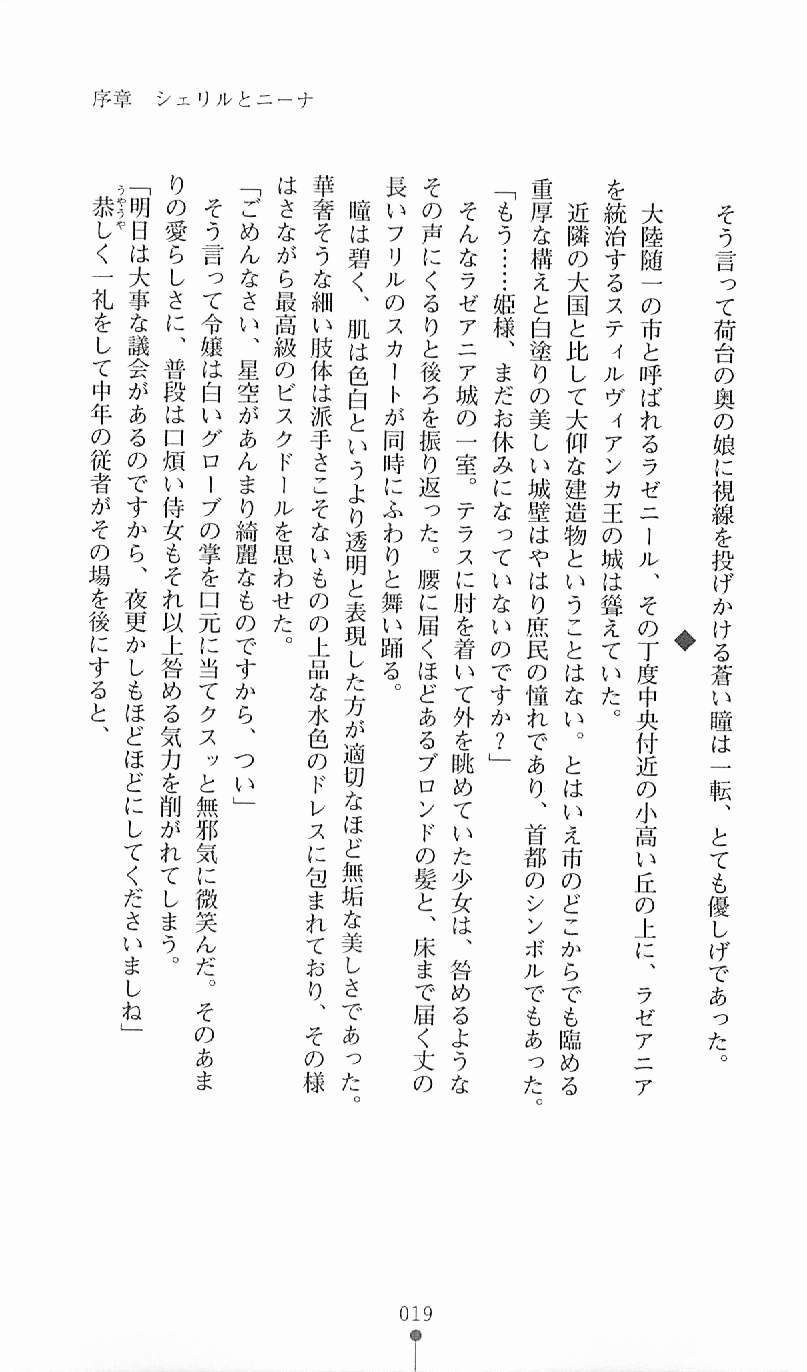 序章　シェリルとニーナ
そう言って荷台の奥の娘に視線を投げかける蒼い瞳は一転、とても優しげであった。
◆
大陸随一の市と呼ばれるラゼニール、その丁度中央付近の小高い丘の上に、ラゼアニア
を統治するスティルヴィアンカ王の城は聳えていた。
近隣の大国と比して大仰な建造物ということはない。とはいえ市のどこからでも臨める
重厚な構えと白塗りの美しい城壁はやはり庶民の憧れであり、首都のシンボルでもあった。
「もう……姫様、まだお休みになっていないのですか？」
そんなラゼアニア城の一室。テラスに肘を着いて外を眺めていた少女は、咎めるような
その声にくるりと後ろを振り返った。腰に届くほどあるブロンドの髪と、床まで届く丈の
長いフリルのスカートが同時にふわりと舞い踊る。
瞳は碧く、肌は色白というより透明と表現した方が適切なほど無垢な美しさであった。
華奢そうな細い肢体は派手さこそないものの上品な水色のドレスに包まれており、その様
はさながら最高級のビスクドールを思わせた。
「ごめんなさい、星空があんまり綺麗なものですから、つい」
そう言って令嬢は白いグローブの掌を口元に当てクスッと無邪気に微笑んだ。そのあま
りの愛らしさに、普段は口煩い侍女もそれ以上咎める気力を削がれてしまう。
「明日は大事な議会があるのですから、夜更かしもほどほどにしてくださいましね」
恭しく一礼をして中年の従者がその場を後にすると、
うやうや
019